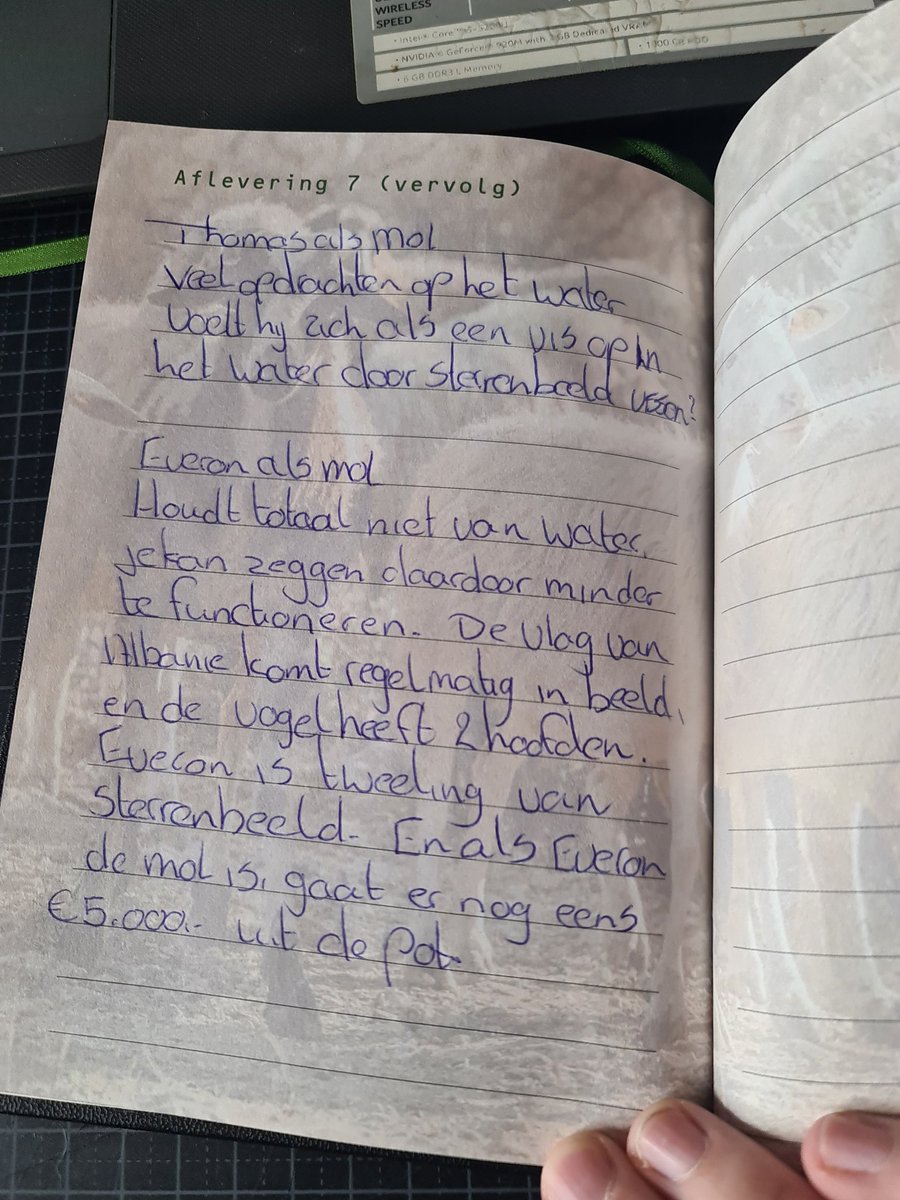 WIRELESS
SPEED
• NVIDIA® GeForce® 920M with 2GB Dedicated VRAM
• 6 GB DDR3 L Memory
Aflevering 7 (vervolg)
Thomas als mol
Veel opdrachten op het water
Voelt hy zich als een vis op in
het water door sterrenbeeld vissen?
Everon als mol
Houdt totaal niet van water,
je kan zeggen daardoor minder
te functioneren. De vlag van
Albanie komt regelmatig in beeld,
en de vogel heeft 2 hoofden.
Everon is tweeling van
sterrenbeeld. En als Everon
de mol is, gaat er nog eens
€5.000.- uit de pot.